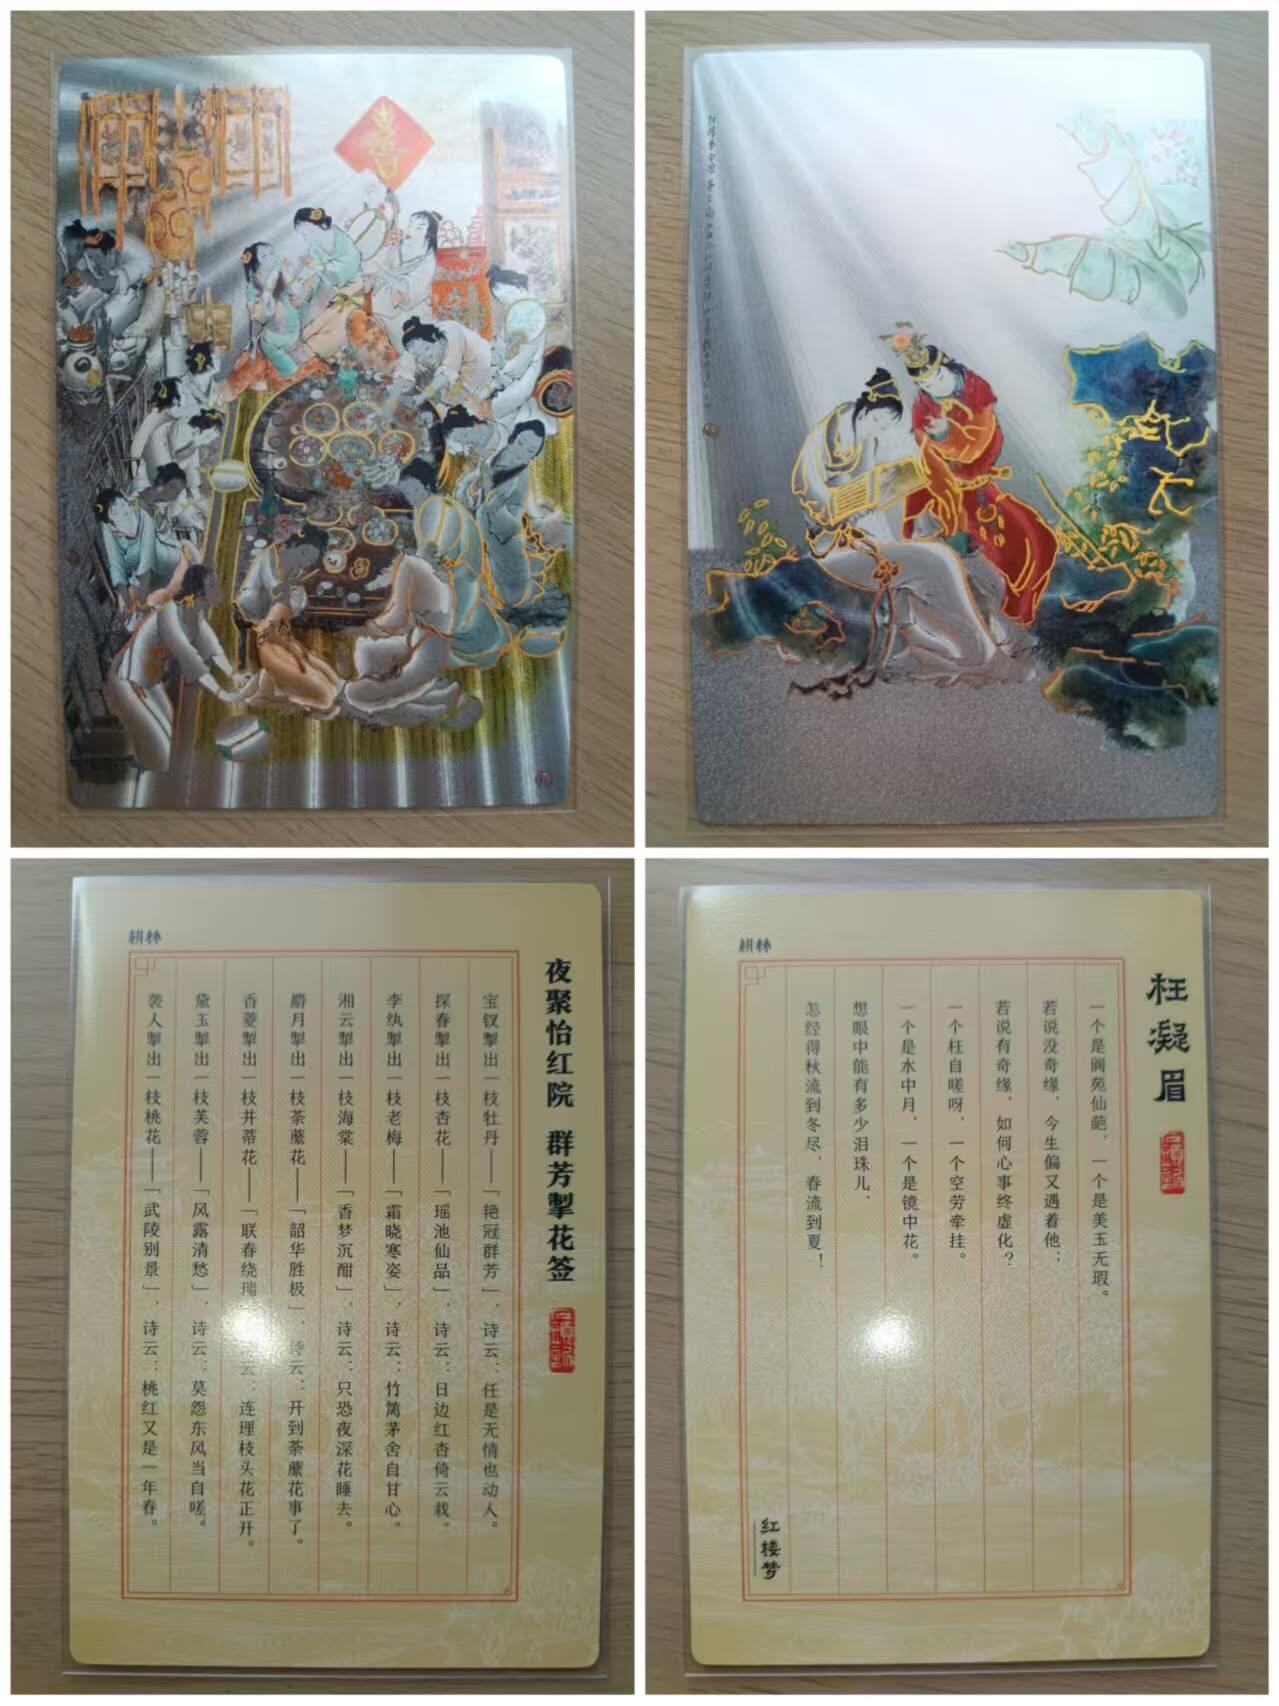 耕林
夜聚怡红院 群芳掣花签
宝钗掣出一枝牡丹——「艳冠群芳」，诗云：任是无情也动人。
探春掣出一枝杏花——「瑶池仙品」，诗云：日边红杏倚云栽。
李纨掣出一枝老梅——「霜晓寒姿」，诗云：竹篱茅舍自甘心。
湘云掣出一枝海棠——「香梦沉酣」，诗云：只恐夜深花睡去。
麝月掣出一枝荼蘼花——「韶华胜极」，诗云：开到荼蘼花事了。
香菱掣出一枝并蒂花——「联春绕瑞 云：连理枝头花正开。
黛玉掣出一枝芙蓉——「风露清愁」，诗云：莫怨东风当自嗟。
袭人掣出一枝桃花——「武陵别景」，诗云：桃红又是一年春。
耕林
枉凝眉
一个是阆苑仙葩，一个是美玉无瑕。
若说没奇缘，今生偏又遇着他；
若说有奇缘，如何心事终虚化？
一个枉自嗟呀，一个空劳牵挂。
一个是水中月，一个是镜中花。
想眼中能有多少泪珠儿，
怎经得秋流到冬尽，春流到夏！
红楼梦